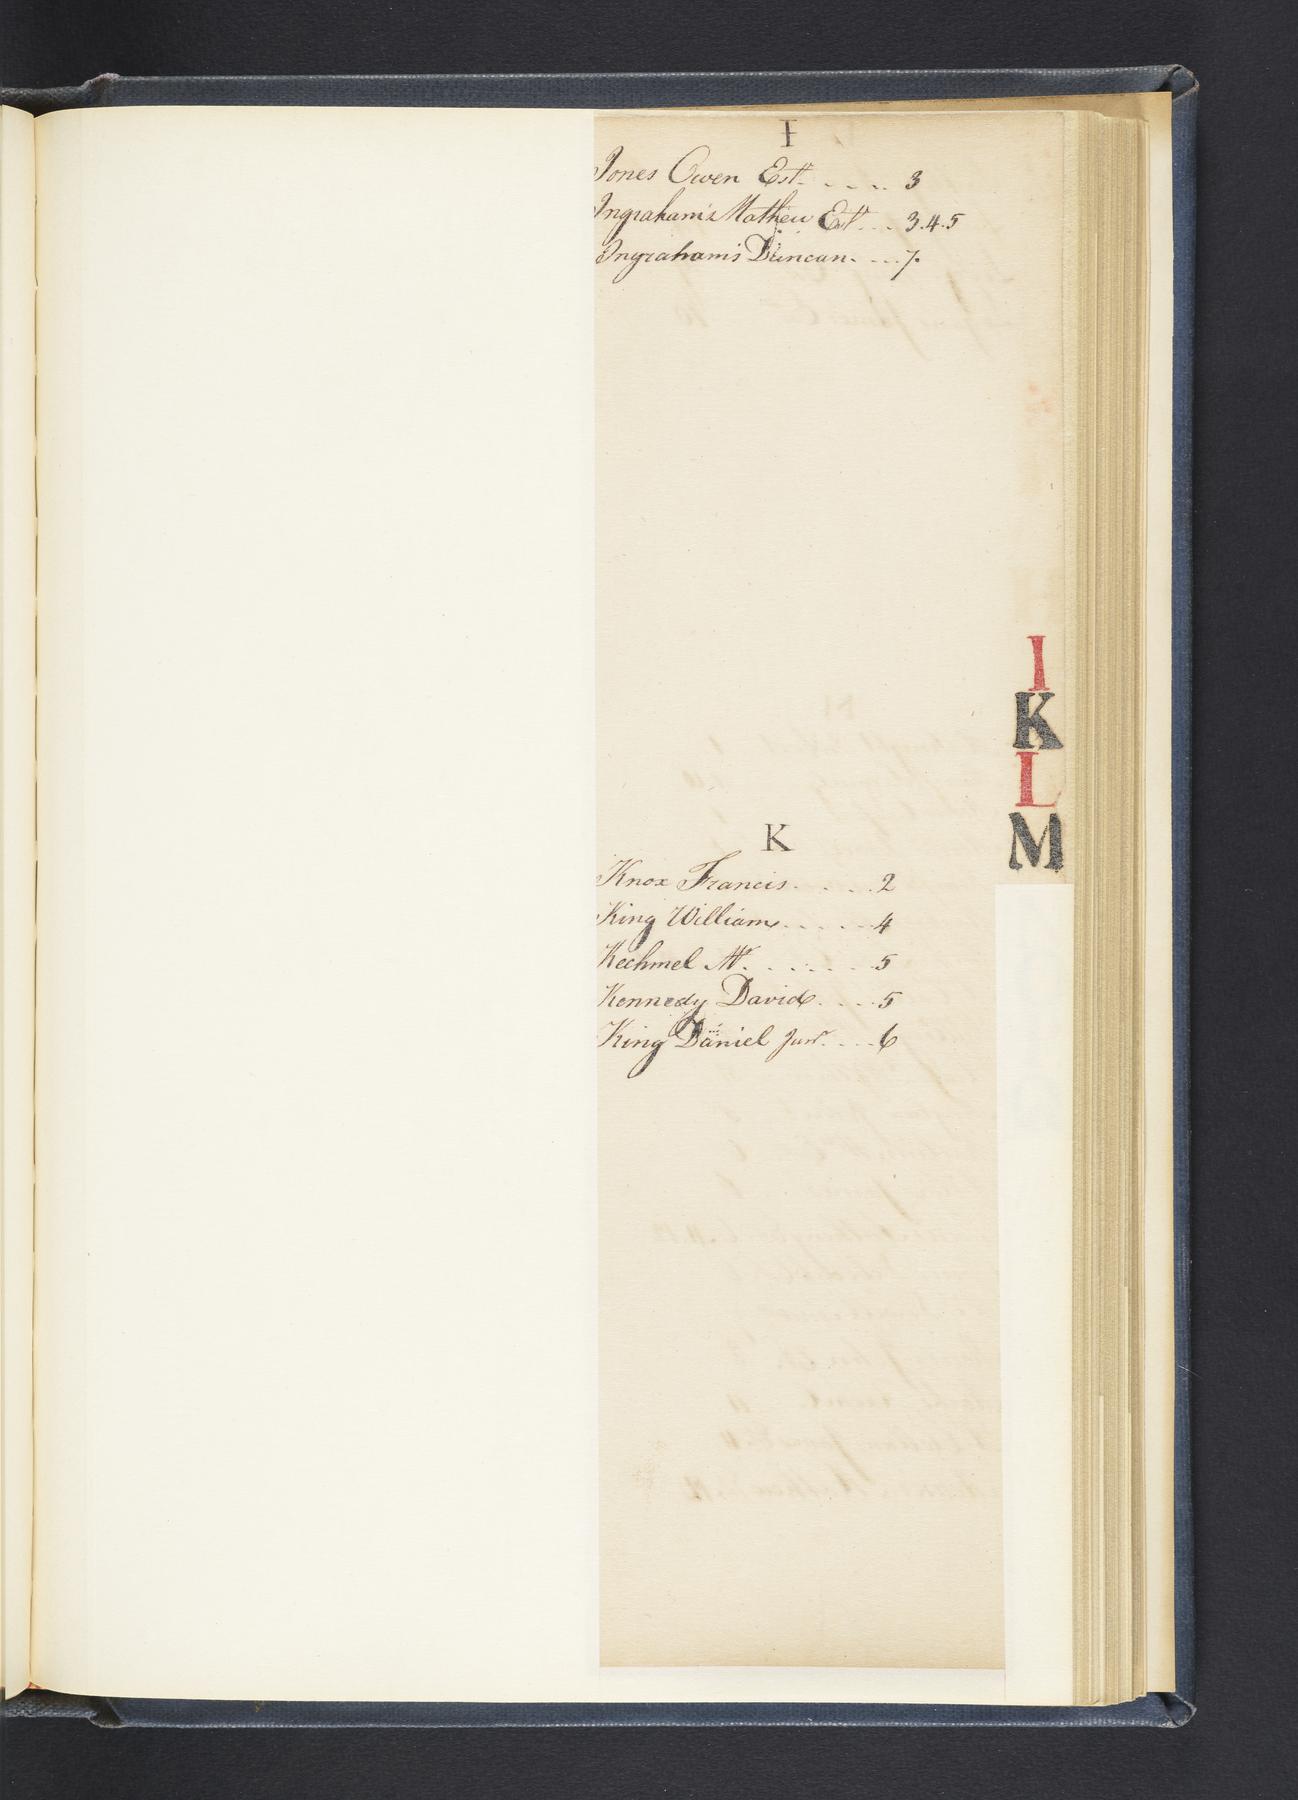 I
Jones Owen Estr. . . . . 3
Ingraham's Mathew Estr. . . . 3.4.5
Ingraham's Duncan. . . . 7.
I
K
L
M
K
Knox Francis. . . . . 2
King William. . . . . . 4
Kechmel Mr. . . . . . . 5
Kennedy David. . . . . 5
King Daniel Junr. . . . . 6